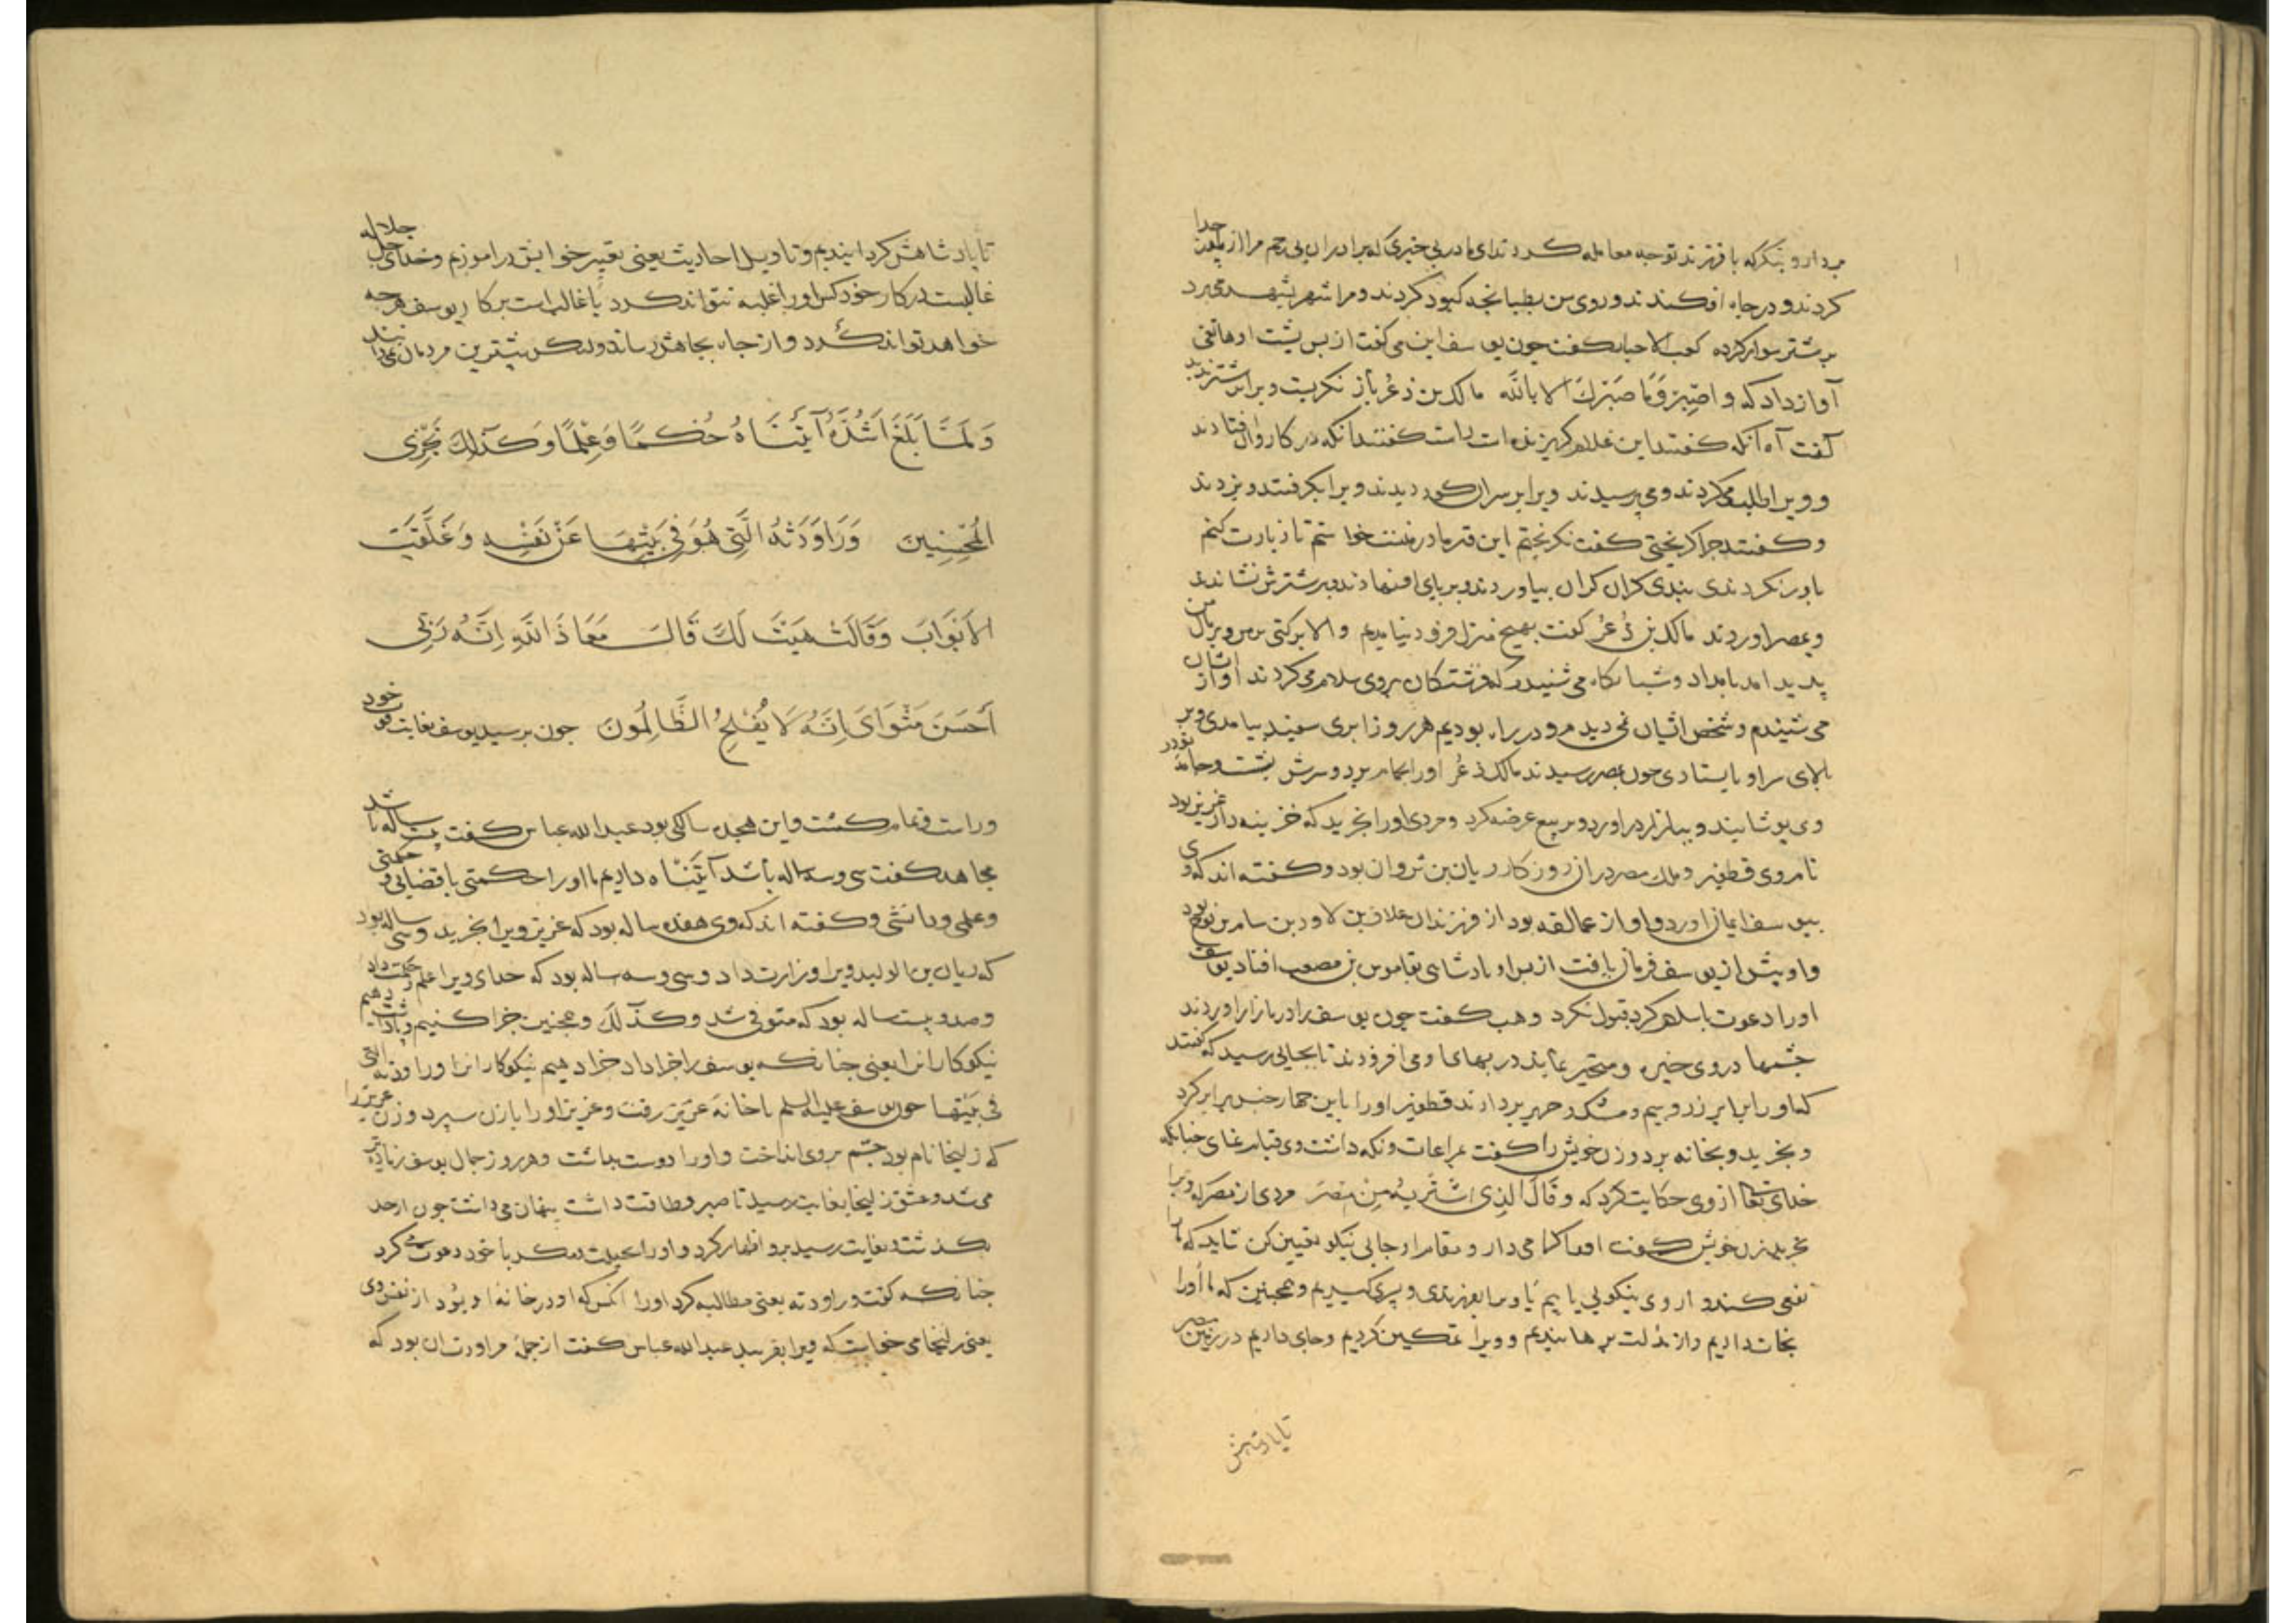 بردار و بنگر که با فرزند تو چه معامله کردند ای مادر بی خبری که برادران بی رحم مرا از پدر جدا
کردند و در چاه افکندند و روی من بطپانچه کبود کردند و مرا شهر بشهر می برد
بر شتر سوار کرده کعب الاحبار کفت چون یوسف این می کفت از پس پشت او هاتفی
آواز داد که واصبر وما صبرک الا بالله مالک بن ذعر باز نکریست ویرا بر شتر ندید
کفت آه آنکه کفتند این غلام کریزنده است راست کفتند آنکه در کاروان افتادند
و ویرا طلب می کردند و می پرسیدند ویرا بر سر آن کور دیدند ویرا بکرفتند و بزدند
و کفتند چرا کریختی کفت نکریختم این قبر مادر منست خواستم تا زیارت کنم
باور نکردندی بندی کران کران بیاوردند و بر پای او نهادند و بر شترش نشاندند
و بمصر اوردند مالک بن ذعر کفت بهیچ منزل فرو دنیامدیم والا برکتی بر من و بر مال من
پدید امد بامداد و شبانکاه می شنیدم که فرشتکان بر وی سلام می کردند اواز ایشان
می شنیدم و شخص ایشان نمی دیدم و در راه بودیم هر روز ابری سفید بیامدی و بر
بالای سر او بایستادی چون بمصر رسیدند مالک ذعر اورا بحمام برد و سرش بشست و جامه
وی پوشانیند و ببازار در اورد و بر بیع عرضه کرد و مردی اورا بخرید که خزینه دار عزیز بود
نام وی قطفیر و ملک مصر در آن روزکار ریان بن ثروان بود و کفته اند که وی
بیوسف ایمان اورد و او از عمالقه بود از فرزندان عملاق بن لاود بن سام بن نوح بود
و او پیش از یوسف فرمان یافت از پس او پادشاهی بقابوس بن مصعب افتاد یوسف
اورا دعوت باسلام کرد قبول نکرد وهب کفت چون یوسف را در بازار اوردند
چشمها در وی خیره و متحیر بماند در بهای او می افزودند تا بجایی رسید که کفتند
که اورا برابر زر و سیم و مشک و حریر بردارند قطفیر اورا باین چهار جنس برابر کرد
و بخرید و بخانه برد و زن خویش را کفت مراعات و نکه داشت وی قیام نمای چنانکه
خدای تعالی از وی حکایت کرد که وقال الذی اشتریه من مصر مردی از مصر که ویرا
بخرید زن خویش کفت اورا کرامی دار و مقام او جایی نیکو تعیین کن شاید که ما را
نفعی کند و از وی نیکویی یابیم یا ویرا بفرزندی و پسری کیریم و همچنین که ما اورا
نجات دادیم و از مذلت برهانیدیم و ویرا تمکین کردیم و جای دادیم در زمین مصر
تا پادشاهش
تا پادشاهش کردانیدیم و تاویل احادیث یعنی تعبیر خوابش در اموزیم و خدای جل جلاله
غالبست در کار خود کس اورا غلبه نتواند کرد یا غالب است بر کار یوسف هر چه
خواهد تواند کرد و از چاه بجاهش رساند ولیکن بیشترین مردمان نمی دانند
وَلَمَّا بَلَغَ اَشُدَّهُ آتَیْنَاهُ حُکْمًا وَعِلْمًا وَکَذٰلِکَ نَجْزِی
المُحْسِنِینَ وَرَاوَدَتْهُ الَّتِی هُوَ فِی بَیْتِهَا عَنْ نَفْسِهِ وَغَلَّقَتِ
الاَبْوَابَ وَقَالَتْ هَیْتَ لَکَ قَالَ مَعَاذَ اللّٰهِ اِنَّهُ رَبِّی
اَحْسَنَ مَثْوَایَ اِنَّهُ لَا یُفْلِحُ الظَّالِمُونَ چون برسید یوسف بغایت قوت خود
و راست و تمام کشت و این هجده سالکی بود عبدالله عباس کفت بیست ساله باشد
مجاهد کفت سی و سه ساله باشد آتیناه دادیم ما اورا حکمتی یا قضایی و حکمتی
و علمی و دانشی و کفته اند که وی هفده ساله بود که عزیز ویرا بخرید و سی ساله بود
که ریان بن الولید ویرا وزارت داد و سی و سه ساله بود که خدای ویرا علم و حکمت داد
و صد و بیست ساله بود که متوفی شد وکذلک و همچنین جزا کنیم و پاداشت دهیم
نیکوکارانرا یعنی چنانکه یوسف را جزا داد جزا دهیم نیکوکارانرا وراودته التی
فی بیتها چون یوسف علیه السلم با خانه عزیز رفت و عزیز اورا بازن سپرد و زن عزیز را
که زلیخا نام بود چشم بر وی انداخت و اورا دوست بداشت و هر روز جمال یوسف زیاده تر
می شد و عشق زلیخا بغایت رسید تا صبر و طاقت داشت پنهان می داشت چون از حد
بکذشت و بغایت رسید برو اظهار کرد و اورا بحیلت و مکر با خود دعوت می کرد
چنانکه کفت وراودته یعنی مطالبه کرد اورا آنکس که او در خانه او بود از نفس وی
یعنی زلیخا می خواست که ویرا بفریبد عبدالله عباس کفت از جمله مراودت آن بود که